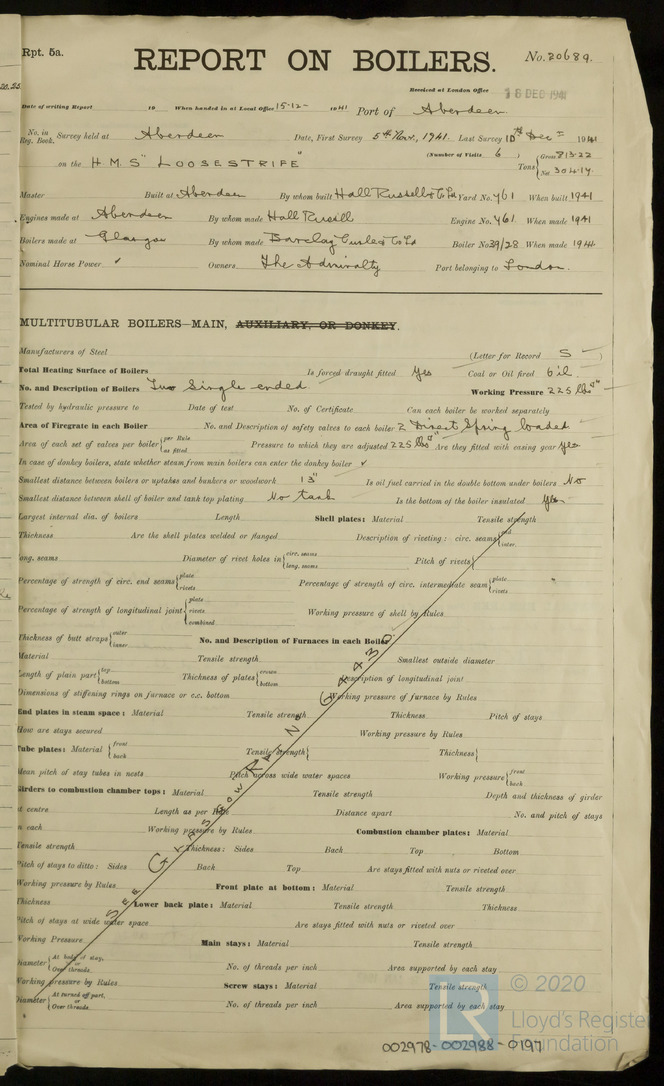 Rpt. 5a.
REPORT ON BOILERS.
No. 20689.
Received at London Office 16 DEC 1941
Date of writing Report 19 When handed in at Local Office 15-12- 1941 Port of Aberdeen
No. in Reg. Book. Survey held at Aberdeen Date, First Survey 5th Nov., 1941. Last Survey 10th Dec 1941
on the H.M.S "LOOSESTRIFE" (Number of Visits 6) Tons { Gross 813.22 Net 304.14
Master Built at Aberdeen By whom built Hall Russell & Co Ld Yard No. 761 When built 1941
Engines made at Aberdeen By whom made Hall Russell Engine No. 761. When made 1941
Boilers made at Glasgow By whom made Barclay Curle & Co Ld Boiler No 39/28 When made 1941.
Nominal Horse Power ✓ Owners The Admiralty Port belonging to London.
MULTITUBULAR BOILERS—MAIN, AUXILIARY, OR DONKEY.
Manufacturers of Steel (Letter for Record S )
Total Heating Surface of Boilers Is forced draught fitted Yes Coal or Oil fired Oil.
No. and Description of Boilers Two Single ended Working Pressure 225 lbs □"
Tested by hydraulic pressure to Date of test No. of Certificate Can each boiler be worked separately
Area of Firegrate in each Boiler No. and Description of safety valves to each boiler 2 Direct Spring loaded
Area of each set of valves per boiler { per Rule as fitted Pressure to which they are adjusted 225 lbs □" Are they fitted with easing gear Yes
In case of donkey boilers, state whether steam from main boilers can enter the donkey boiler ✓
Smallest distance between boilers or uptakes and bunkers or woodwork 13" Is oil fuel carried in the double bottom under boilers No
Smallest distance between shell of boiler and tank top plating No tank Is the bottom of the boiler insulated Yes
Largest internal dia. of boilers Length Shell plates: Material Tensile strength
Thickness Are the shell plates welded or flanged Description of riveting: circ. seams { end inter.
long. seams Diameter of rivet holes in { circ. seams long. seams Pitch of rivets {
Percentage of strength of circ. end seams { plate rivets Percentage of strength of circ. intermediate seam { plate rivets
Percentage of strength of longitudinal joint { plate rivets combined Working pressure of shell by Rules
Thickness of butt straps { outer inner No. and Description of Furnaces in each Boiler
Material Tensile strength Smallest outside diameter
Length of plain part { top bottom Thickness of plates { crown bottom Description of longitudinal joint
Dimensions of stiffening rings on furnace or c.c. bottom Working pressure of furnace by Rules
End plates in steam space: Material Tensile strength Thickness Pitch of stays
How are stays secured Working pressure by Rules
Tube plates: Material { front back Tensile strength { Thickness {
Mean pitch of stay tubes in nests Pitch across wide water spaces Working pressure { front back
Girders to combustion chamber tops: Material Tensile strength Depth and thickness of girder
at centre Length as per Rule Distance apart No. and pitch of stays
in each Working pressure by Rules Combustion chamber plates: Material
Tensile strength Thickness: Sides Back Top Bottom
Pitch of stays to ditto: Sides Back Top Are stays fitted with nuts or riveted over
Working pressure by Rules Front plate at bottom: Material Tensile strength
Thickness Lower back plate: Material Tensile strength Thickness
Pitch of stays at wide water space Are stays fitted with nuts or riveted over
Working Pressure Main stays: Material Tensile strength
Diameter { At body of stay, or Over threads No. of threads per inch Area supported by each stay
Working pressure by Rules Screw stays: Material Tensile strength
Diameter { At turned off part, or Over threads No. of threads per inch Area supported by each stay
SEE GLASGOW Rpt No 64430
© 2020
LR Lloyd's Register
Foundation
002978-002988-0197